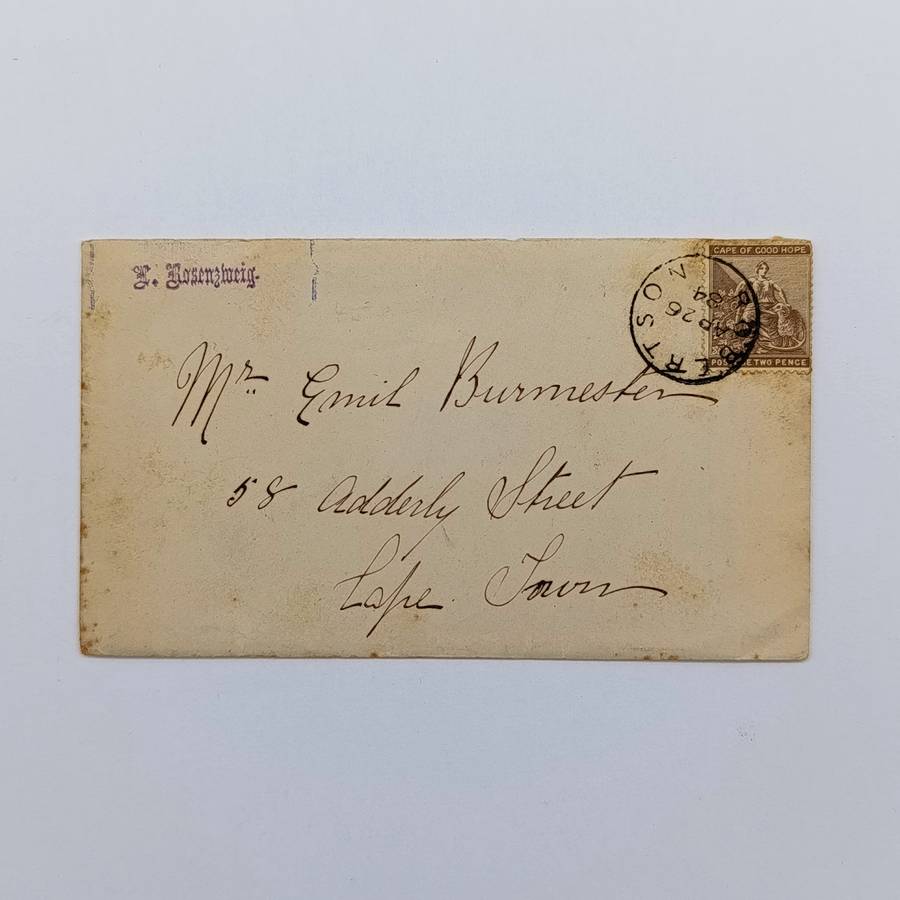 L. Rosenzweig.
CAPE OF GOOD HOPE
POSTAGE TWO PENCE
ROBERTSON
AP 26
84
Mr. Emil Burmester
58 Adderly Street
Cape Town